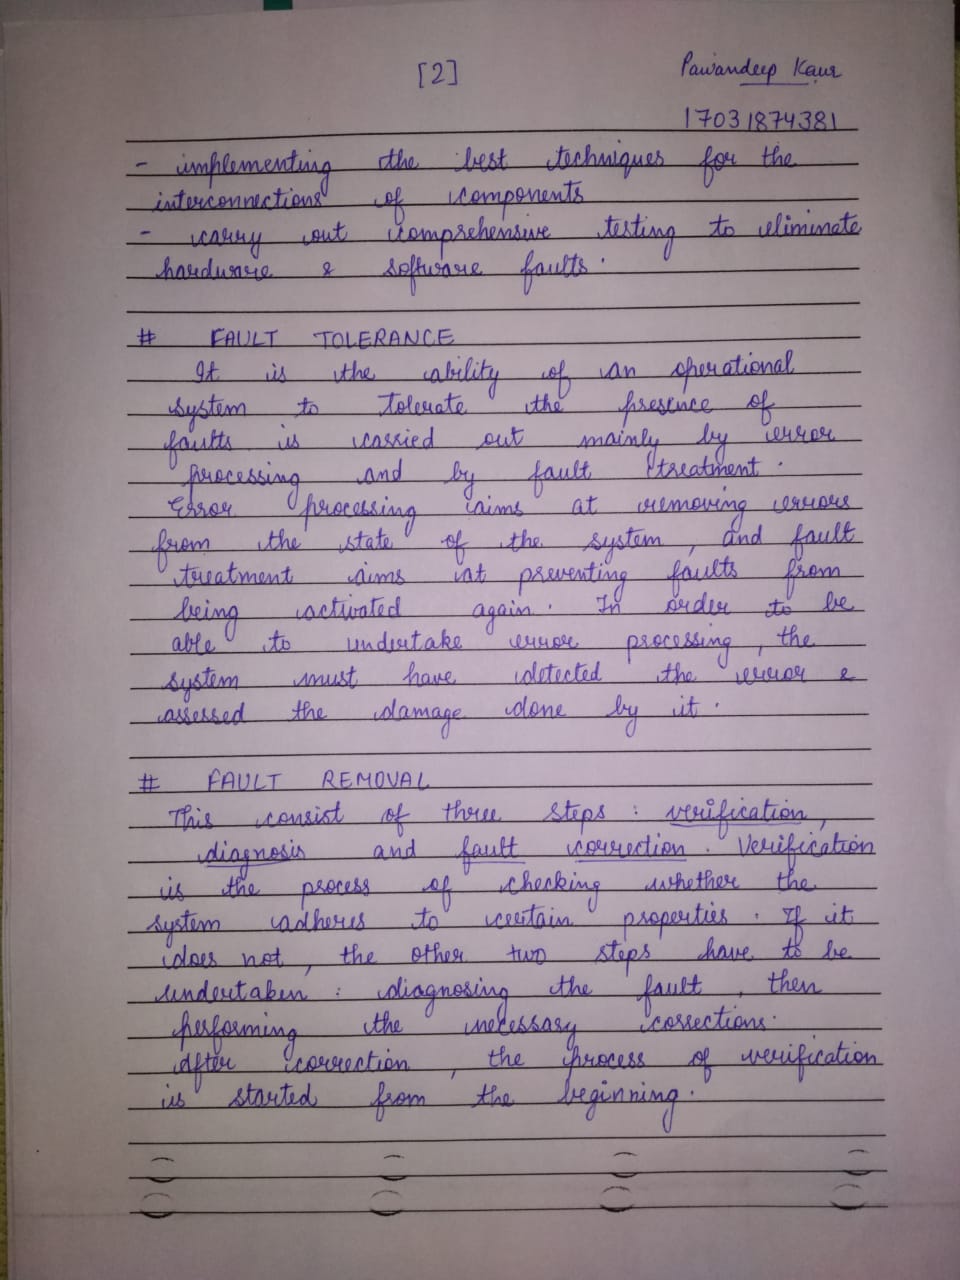 [2]
Pawandeep Kaur
17031874381
- implementing the best techniques for the
interconnections of components
- carry out comprehensive testing to eliminate
hardware & software faults.
# FAULT TOLERANCE
It is the ability of an operational
system to tolerate the presence of
faults is carried out mainly by error
processing and by fault treatment.
Error processing aims at removing errors
from the state of the system, and fault
treatment aims at preventing faults from
being activated again. In order to be
able to undertake error processing, the
system must have detected the error &
assessed the damage done by it.
# FAULT REMOVAL
This consist of three steps: verification,
diagnosis and fault correction. Verification
is the process of checking whether the
system adheres to certain properties. If it
does not, the other two steps have to be
undertaken: diagnosing the fault, then
performing the necessary corrections.
After correction, the process of verification
is started from the beginning.